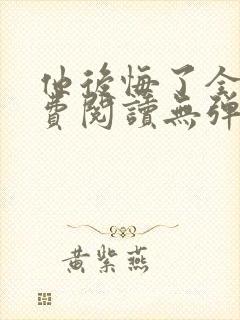 他後悔了全
費閱讀無彈
黃紫燕